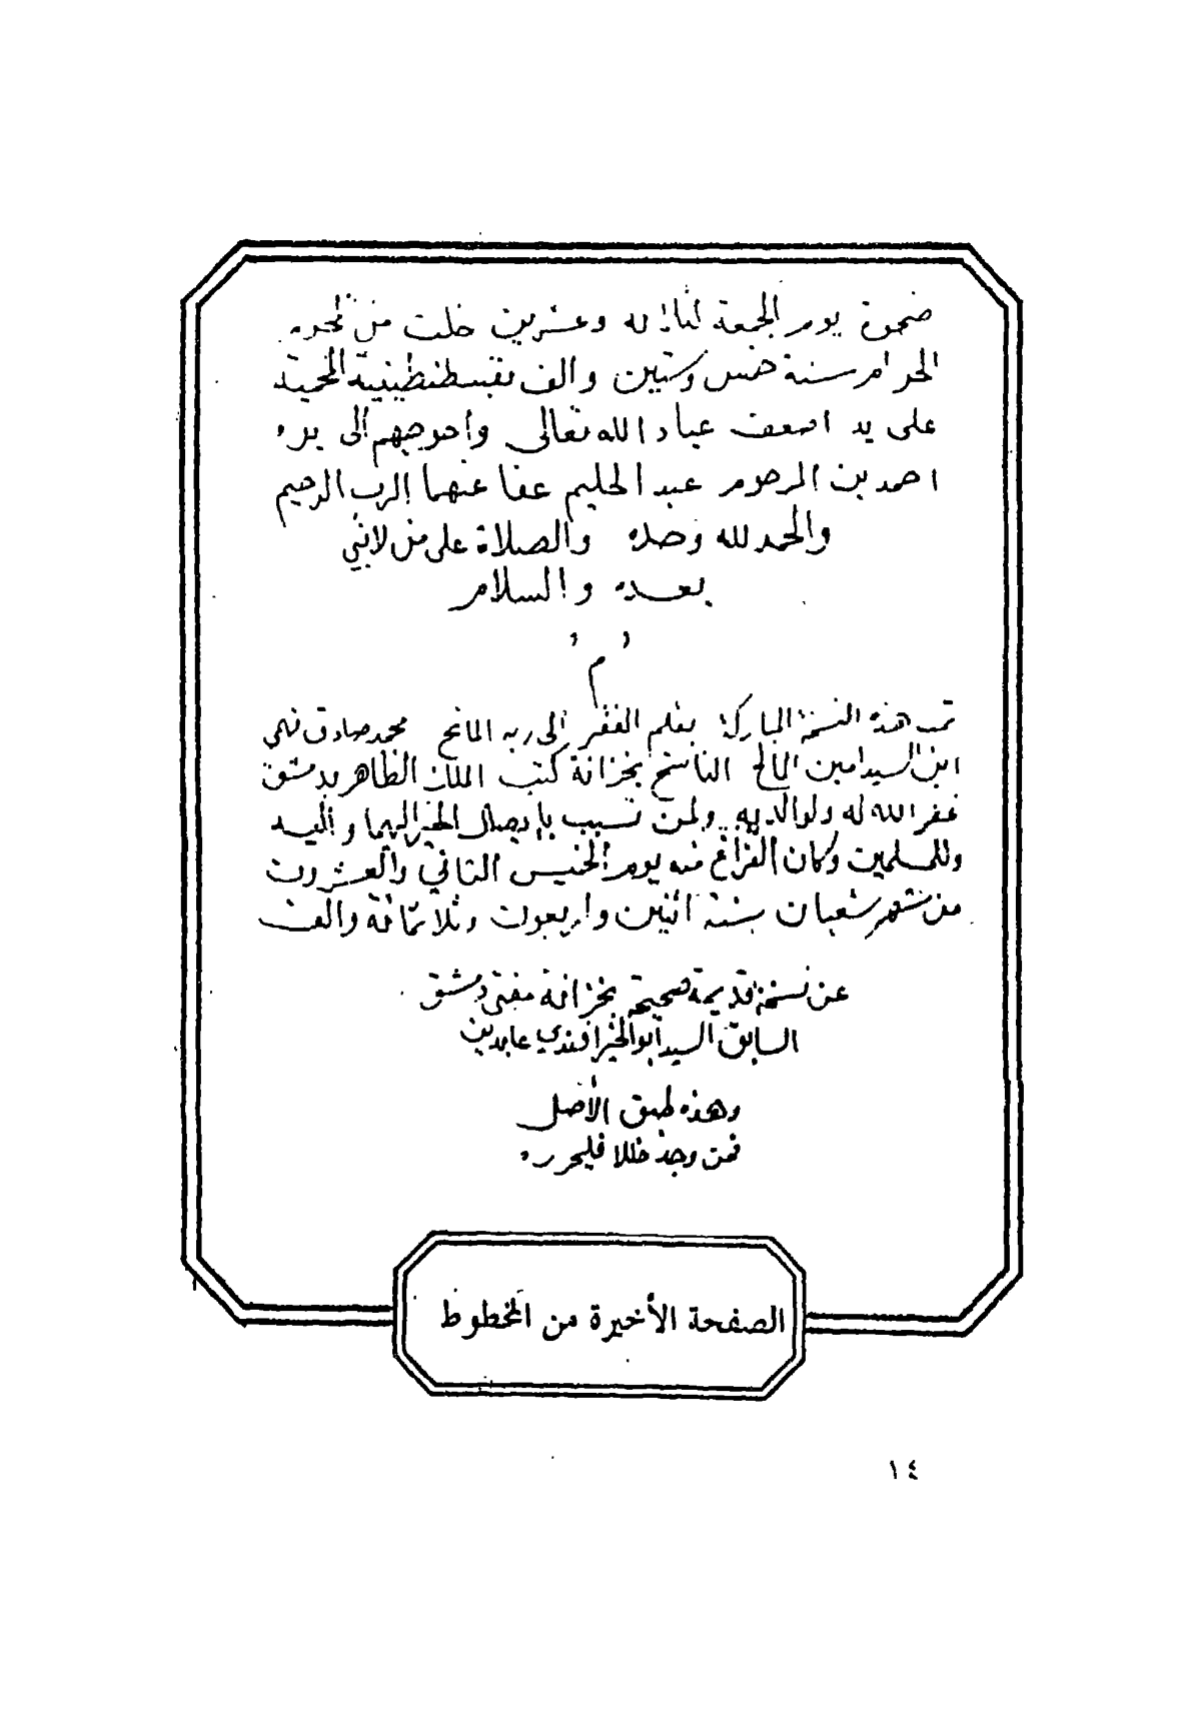 ضحوة يوم الجمعة لثلاثة وعشرين خلت من محرم
الحرام سنة خمس وستين والف بقسطنطينية المحمية
على يد اضعف عباد الله تعالى واحوجهم الى بره
احمد بن المرحوم عبد الحليم عفا عنهما الرب الرحيم
والحمد لله وحده والصلاة على من لا نبي
بعده والسلام
م
تمت هذه النسخة المباركة بقلم الفقير الى ربه المانح محمد صادق فهمي
ابن السيد امين المالح الناسخ بخزانة كتب الملك الظاهر بدمشق
غفر الله له ولوالديه ولمن تسبب بإيصال الخير اليهما واليه
وللمسلمين وكان الفراغ منه يوم الخميس الثاني والعشرون
من شهر شعبان سنة اثنين واربعون وثلاثمائة والف
عن نسخة قديمة صحيحة بخزانة مفتي دمشق
السابق السيد ابو الخير افندي عابدين
وهذه طبق الأصل
فمن وجد خللا فليحرره
الصفحة الأخيرة من المخطوط
١٤